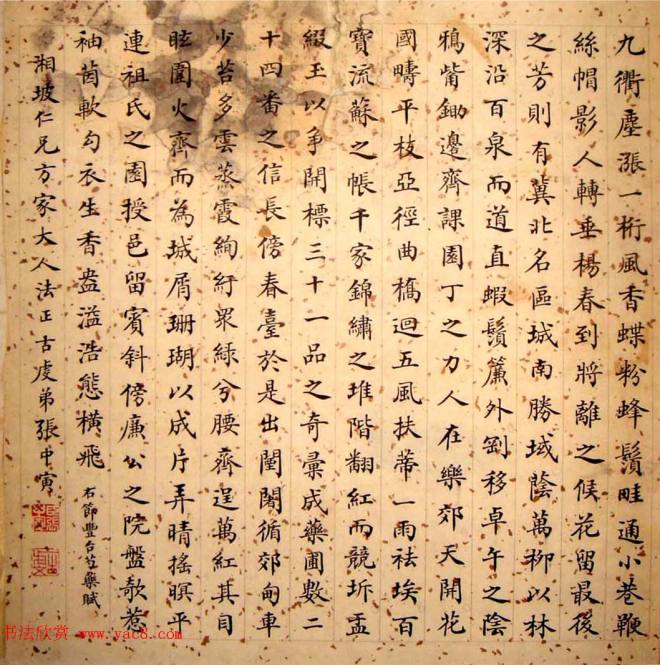 九衢塵漲一桁風香蝶粉蜂鬚畦通小巷鞭
絲帽影人轉垂楊春到將離之候花留最後
之芳則有冀北名區城南勝域陰萬柳以林
深沿百泉而道直蝦鬚簾外劉移卓午之陰
鴉觜鋤邊齊課園丁之力人在樂郊天開花
國疇平枝亞徑曲橋迴五風扶蒂一雨祛埃百
寶流蘇之帳千家錦繡之堆階翻紅而競坼盂
綴玉以爭開標三十一品之奇彙成藥圃數二
十四番之信長傍春臺於是出闉闍循郊甸車
少苔多雲蒸霞絢紆眾綠兮腰齊逞萬紅其目
眩圍火齊而為城屑珊瑚以成片弄晴搖暝平
連祖氏之園授邑留賓斜倚廉公之院盤欹惹
袖茵軟勾衣生香盎溢浩態橫飛
右節豐台芍藥賦
湘坡仁兄方家大人法正古虔弟張中寅
书法欣赏 www.yac8.com